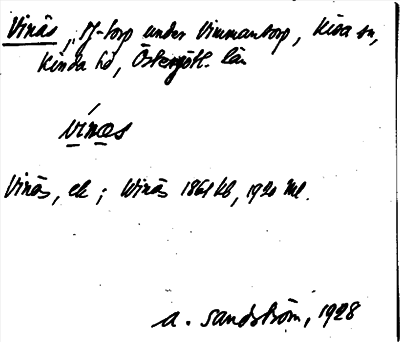 Vinäs, f-torp under Vimmantorp, Kisa sn,
Kinda hd, Östergötl. län
vínæs
Vinäs, ek ; Winäs 1864 kb, 1920 ml.
A. Sandström, 1928